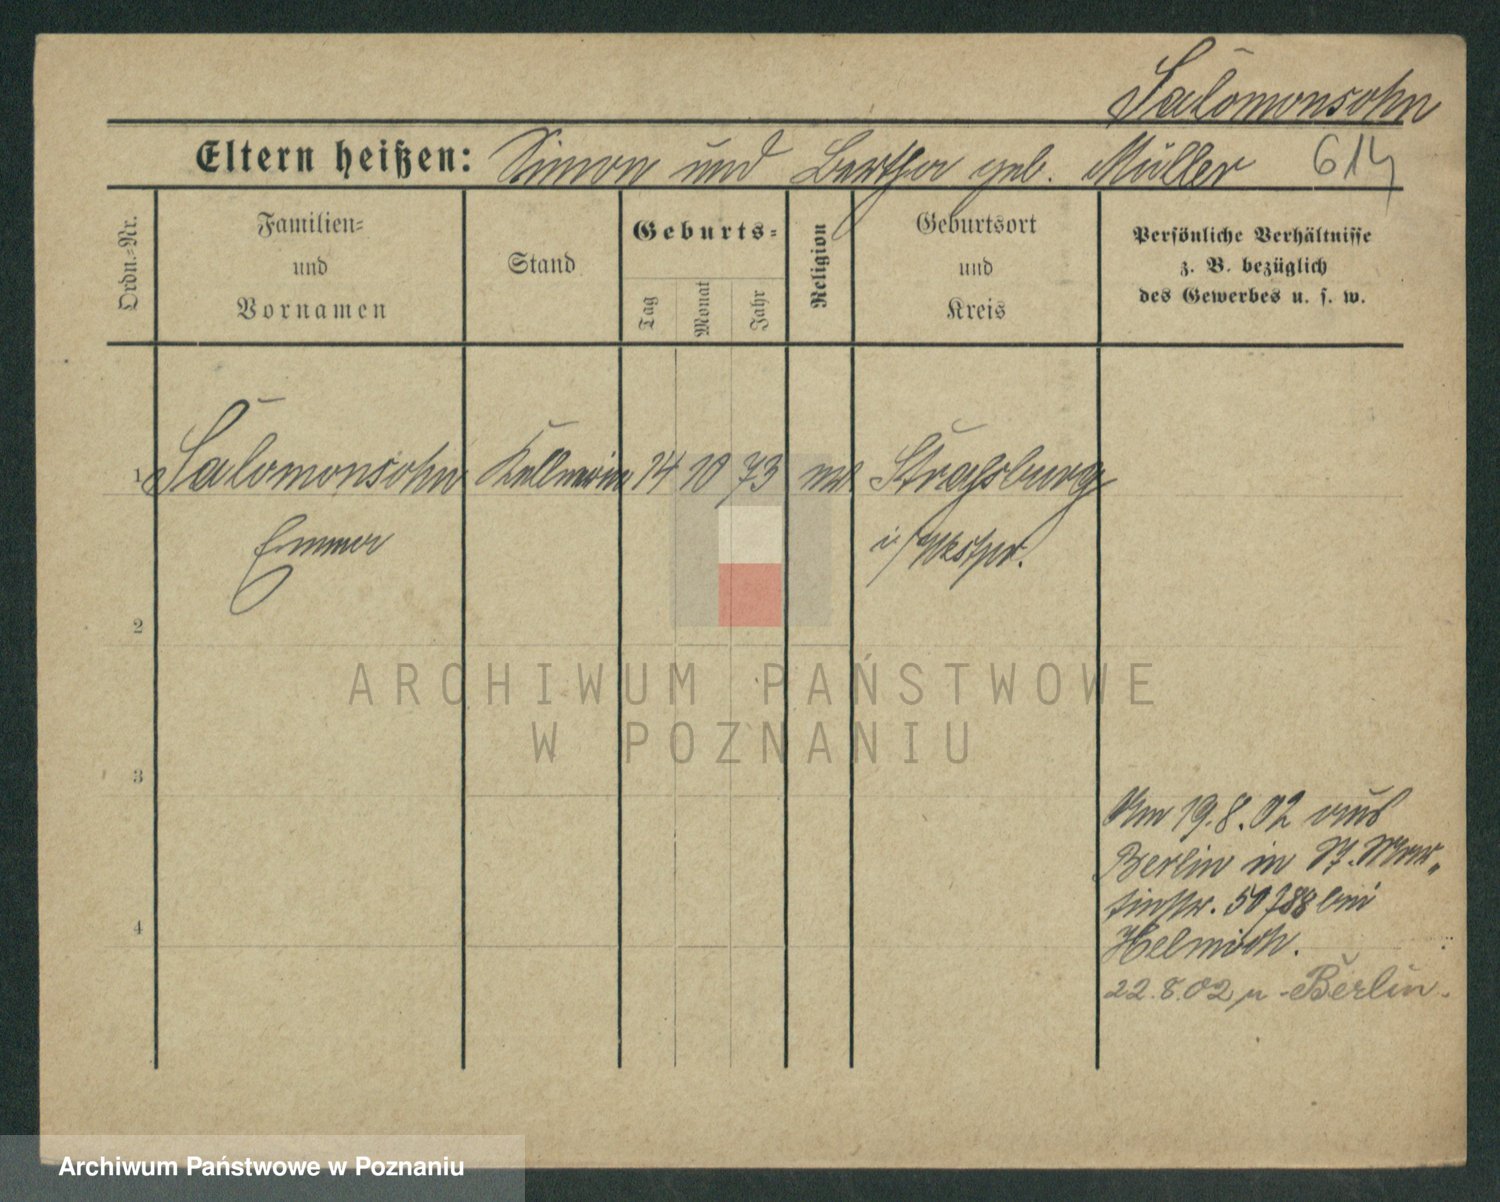 Salomonsohn
Eltern heißen: Simon und Bertha geb. Müller 614
Ordn.-Nr.
Familien-
und
Vornamen
Stand
Geburts-
Tag
Monat
Jahr
Religion
Geburtsort
und
Kreis
Persönliche Verhältnisse
z. B. bezüglich
des Gewerbes u. s. w.
1 Salomonsohn Kellnerin 14 10 73 Straßburg
Emma i/Westpr.
2
ARCHIWUM PAŃSTWOWE
W POZNANIU
3
Am 19.8.02 aus
Berlin in St. Mar-
tinstr. bei
22.8.02 n. Berlin.
4
Archiwum Państwowe w Poznaniu